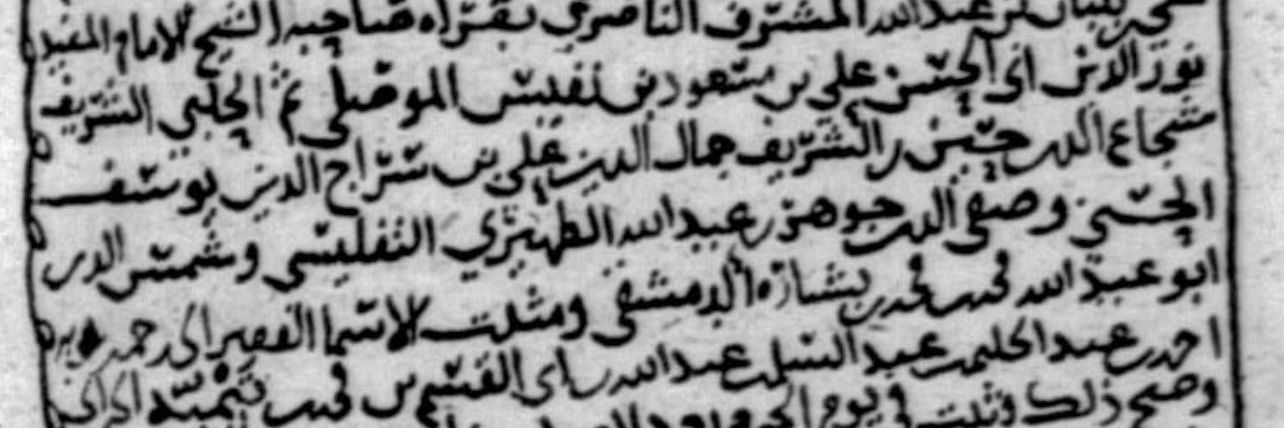 بن عبد الله المشرف الناصري بقراءه صاحبه الشيخ الامام المفيد
نور الدين ابى الحسن علي بن مسعود بن نفيس الموصلي ثم الحلبي الشريف
شجاع الدين حسين بن الشريف جمال الدين علي بن سراج الدين يوسف
الحسني وصفي الدين جوهر بن عبد الله الظهيري التفليسي وشمس الدين
ابو عبد الله محمد بن محمد بن بشاره الدمشقي ومثبت الاسما الفقير الى رحمه ربه
احمد بن عبد الحليم بن عبد السلم بن عبد الله بن ابى القسم بن محمد بن تيميه
وصح ذلك وثبت في يوم